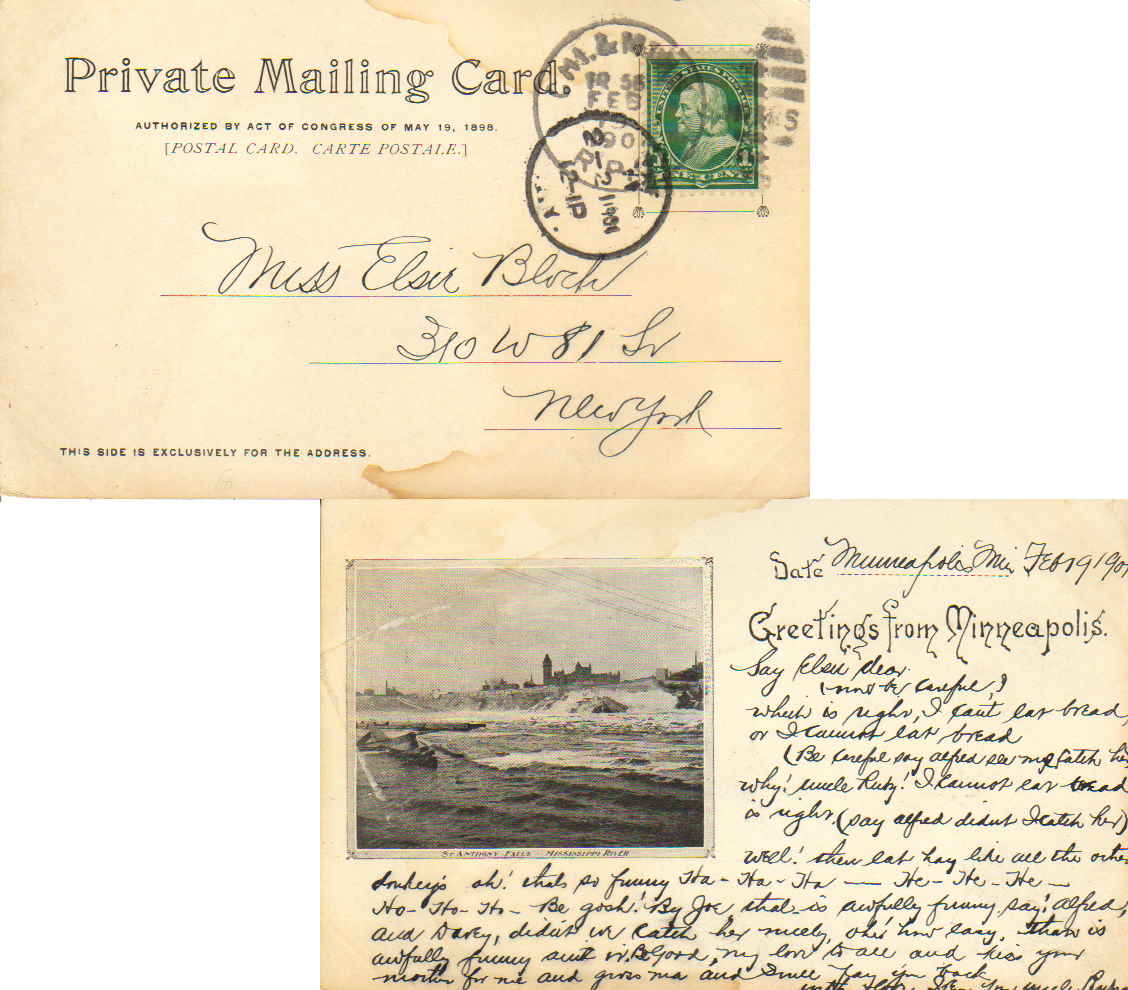 Private Mailing Card.
AUTHORIZED BY ACT OF CONGRESS OF MAY 19, 1898.
[POSTAL CARD. CARTE POSTALE.]
FEB
UNITED STATES POSTAGE
ONE CENT
Miss Elsie Bloch
310 W 81 St
New York
THIS SIDE IS EXCLUSIVELY FOR THE ADDRESS.
Date Minneapolis Min Feb 19 190
Greetings from Minneapolis.
Say Elsie dear
(now be careful,)
which is right, I can't eat bread,
or I cannot eat bread
(Be careful say alfred see me catch her
why! uncle Ruby! I cannot eat bread
is right (say alfred didnt I catch her)
ST ANTHONY FALLS - MISSISSIPPI RIVER
Well! then eat hay like all the other
donkeys oh! thats so funny Ha-Ha-Ha — He-He-He—
Ho-Ho-Ho- Be gosh! By Joe, that is awfully funny, say! alfred,
and Davey, didnt we catch her nicely, oh! how easy. that is
awfully funny aint it. Be Good, my love to all and kiss your
mother for me and gross ma and I will pay you back